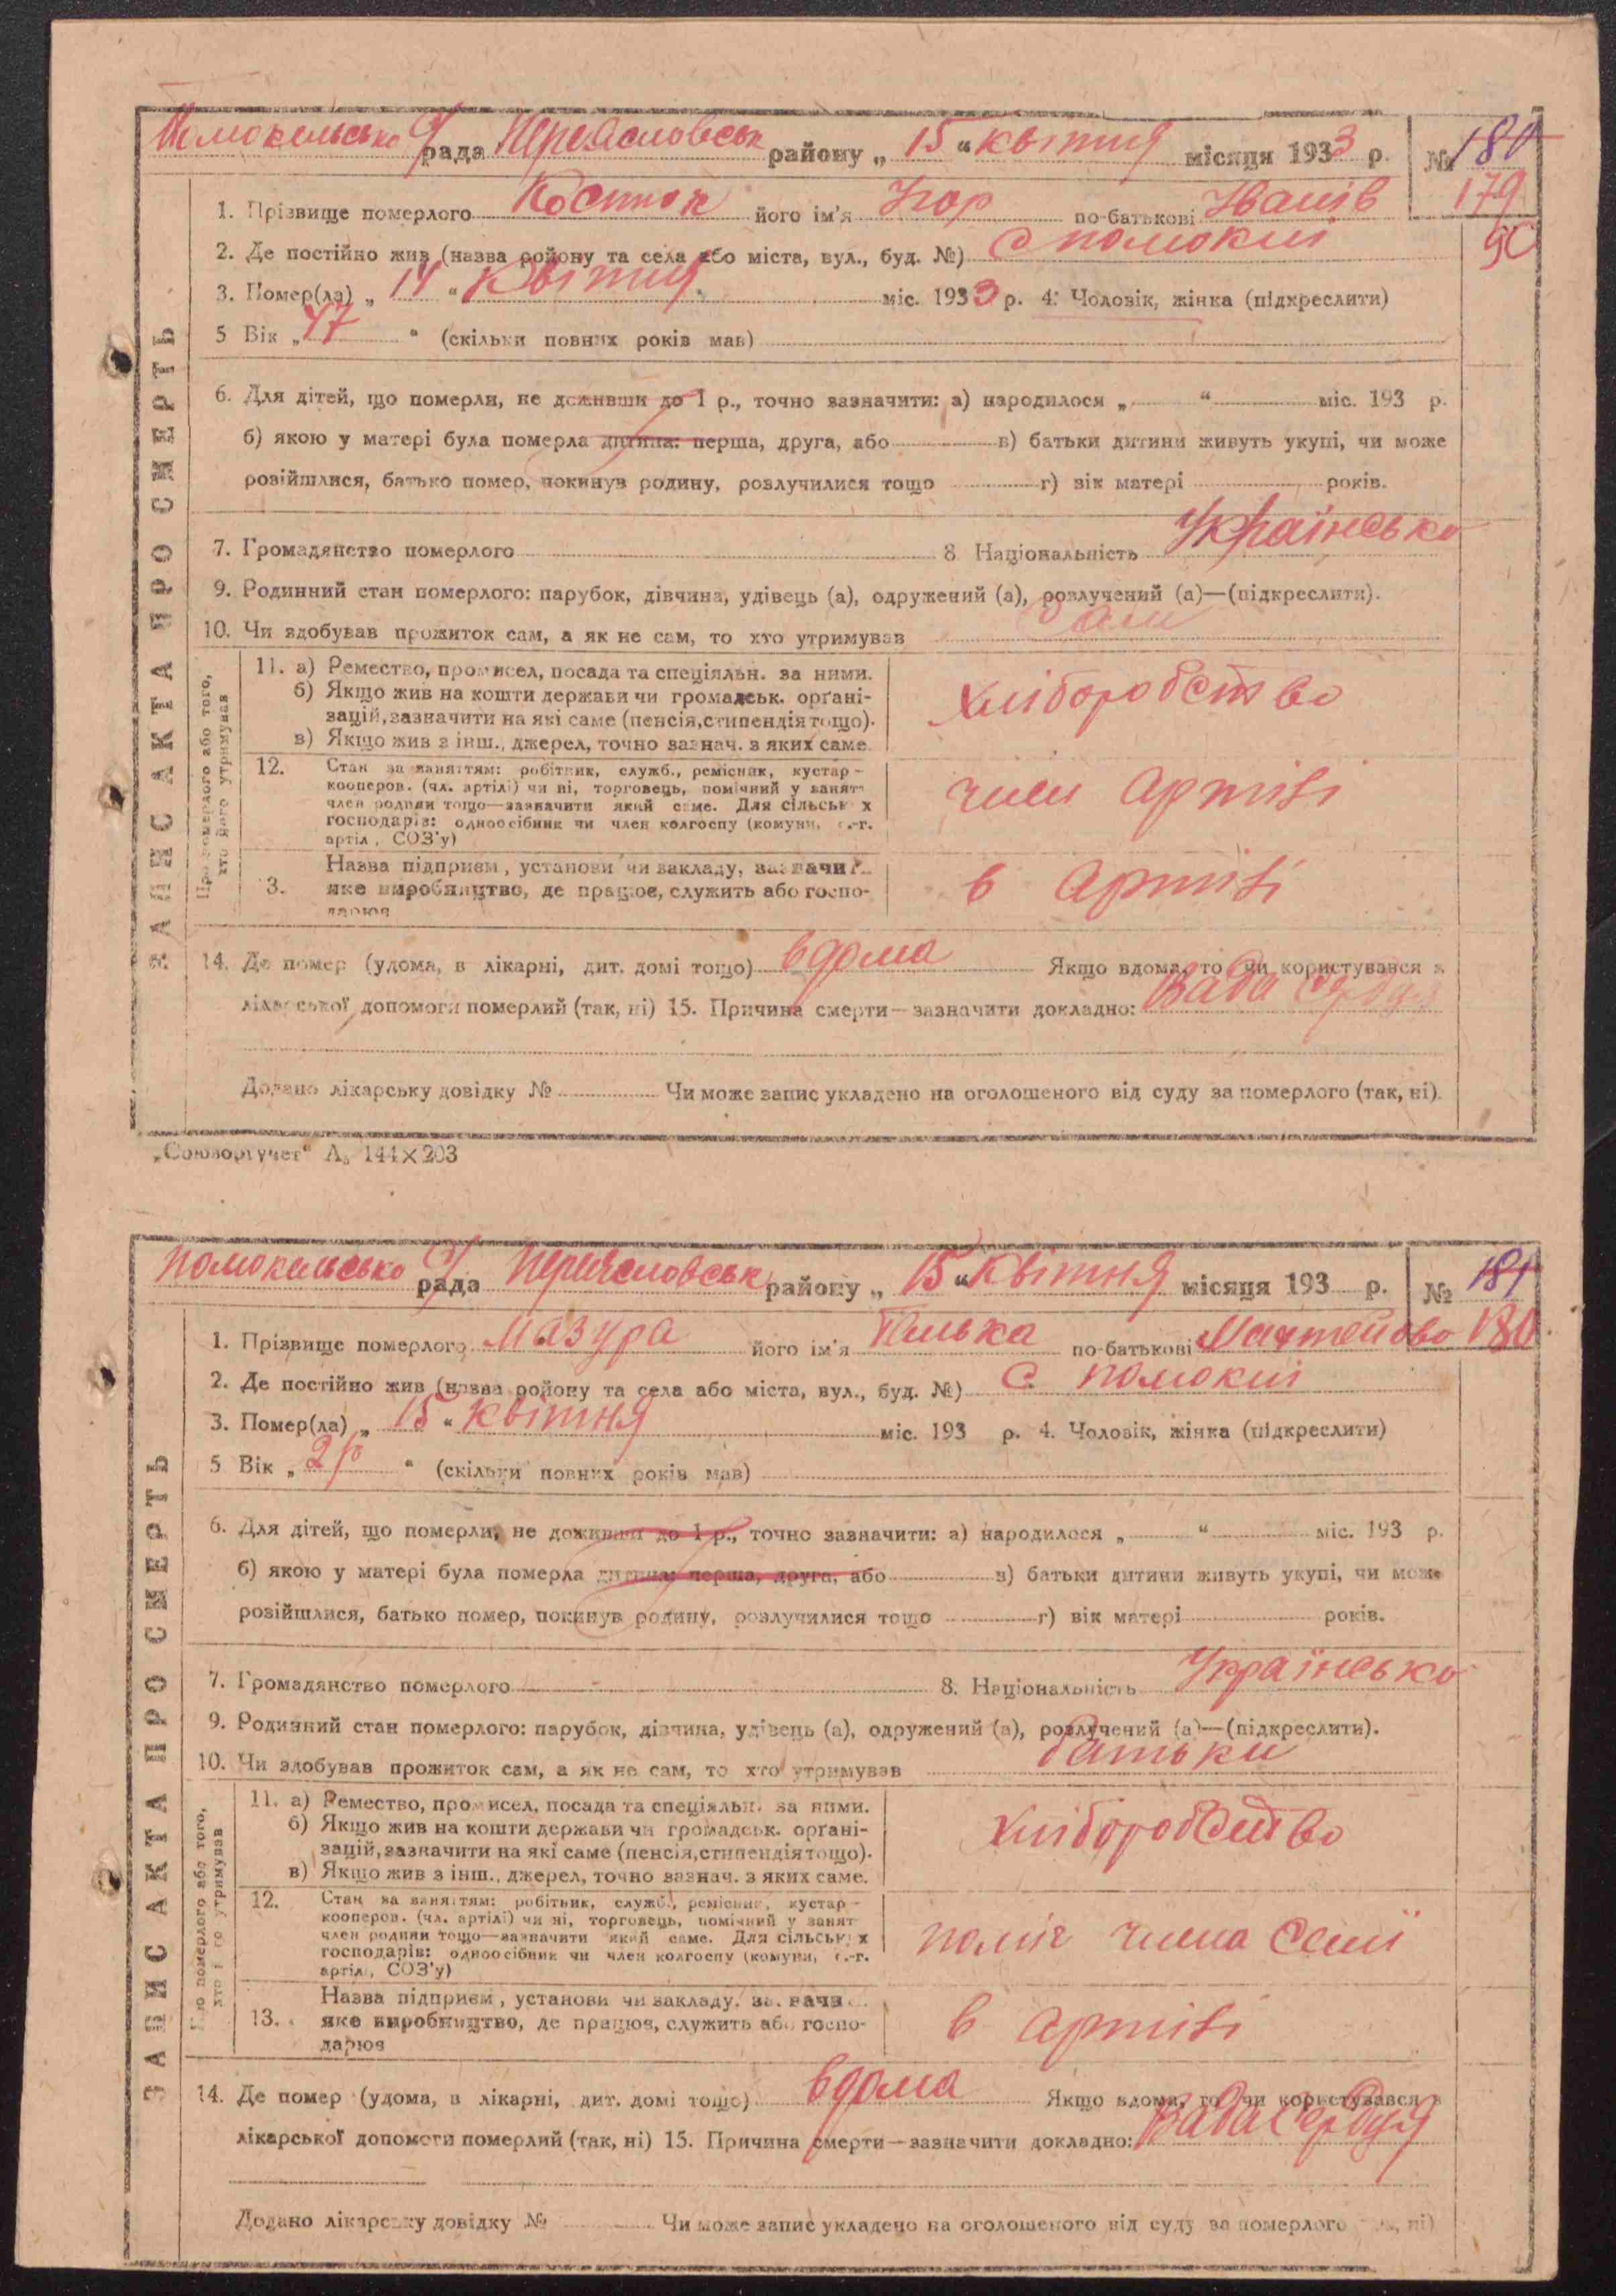 Помокельсько С/рада Переяславськ району „ 15 “ квітня місяця 1933 р. № 180
179
1. Прізвище померлого Костюк його ім'я Ігор по-батькові Іванів
2. Де постійно жив (назва району та села або міста, вул., буд. №) с помоклі
90
3. Помер(ла) „ 14 “ Квітня міс. 1933 р. 4. Чоловік, жінка (підкреслити)
5 Вік „ 47 “ (скільки повних років мав)
6. Для дітей, що померли, не доживши до 1 р., точно зазначити: а) народилося „ “ міс. 193 р.
б) якою у матері була померла дитина: перша, друга, або в) батьки дитини живуть укупі, чи може
розійшлися, батько помер, покинув родину, розлучилися тощо г) вік матері років.
7. Громадянство померлого 8 Національність Українсько
9. Родинний стан померлого: парубок, дівчина, удівець (а), одружений (а), розлучений (а)—(підкреслити).
10. Чи здобував прожиток сам, а як не сам, то хто утримував Сам
ЗАПИС АКТА ПРО СМЕРТЬ
Про померлого або того,
хто його утримував
11. а) Ремество, промисел, посада та спеціяльн. за ними.
б) Якщо жив на кошти держави чи громадськ. орґані-
зацій, зазначити на які саме (пенсія, стипендія тощо).
в) Якщо жив з інш., джерел, точно зазнач. з яких саме.
хліборобство
12. Стан за заняттям: робітник, служб., ремісник, кустар-
кооперов. (чл. артілі) чи ні, торговець, помічний у занят
член родини тощо—зазначити який саме. Для сільських
господарів: одноосібник чи член колгоспу (комуни, с.-г.
артіл, СОЗ'у)
член артілі
13. Назва підприєм, установи чи закладу, зазначи
яке виробництво, де працює, служить або госпо-
дарює
в артілі
14. Де помер (удома, в лікарні, дит. домі тощо) вдома Якщо вдома, то чи користувався з
лікарської допомоги померлий (так, ні) 15. Причина смерти—зазначити докладно: Вада серця
Додано лікарську довідку № Чи може запис укладено на оголошеного від суду за померлого (так, ні).
„Союзоргучет“ А₅ 144×203
Помокельсько С/рада Переяславськ району „ 15 “ квітня місяця 193 р. № 181
180
1. Прізвище померлого Мазура його ім'я Палька по-батькові
2. Де постійно жив (назва району та села або міста, вул., буд. №) с. помоклі
3. Помер(ла) „ 15 “ квітня міс. 193 р. 4. Чоловік, жінка (підкреслити)
5 Вік „ 2 р “ (скільки повних років мав)
6. Для дітей, що померли, не доживши до 1 р., точно зазначити: а) народилося „ “ міс. 193 р.
б) якою у матері була померла дитина: перша, друга, або в) батьки дитини живуть укупі, чи може
розійшлися, батько помер, покинув родину, розлучилися тощо г) вік матері років.
7. Громадянство померлого 8. Національність Українсько
9. Родинний стан померлого: парубок, дівчина, удівець (а), одружений (а), розлучений (а)—(підкреслити).
10. Чи здобував прожиток сам, а як не сам, то хто утримував батьки
ЗАПИС АКТА ПРО СМЕРТЬ
Про померлого або того,
хто його утримував
11. а) Ремество, промисел, посада та спеціяльн. за ними.
б) Якщо жив на кошти держави чи громадськ. орґані-
зацій, зазначити на які саме (пенсія, стипендія тощо).
в) Якщо жив з інш., джерел, точно зазнач. з яких саме.
хліборобство
12. Стан за заняттям: робітник, служб., ремісник, кустар-
кооперов. (чл. артілі) чи ні, торговець, помічний у занят
член родини тощо—зазначити який саме. Для сільських
господарів: одноосібник чи член колгоспу (комуни, с.-г.
артіл, СОЗ'у)
поміч члена семї
13. Назва підприєм, установи чи закладу, зазначи
яке виробництво, де працює, служить або госпо-
дарює
в артілі
14. Де помер (удома, в лікарні, дит. домі тощо) вдома Якщо вдома, то чи користувався з
лікарської допомоги померлий (так, ні) 15. Причина смерти—зазначити докладно: Вада серця
Додано лікарську довідку № Чи може запис укладено на оголошеного від суду за померлого (так, ні)